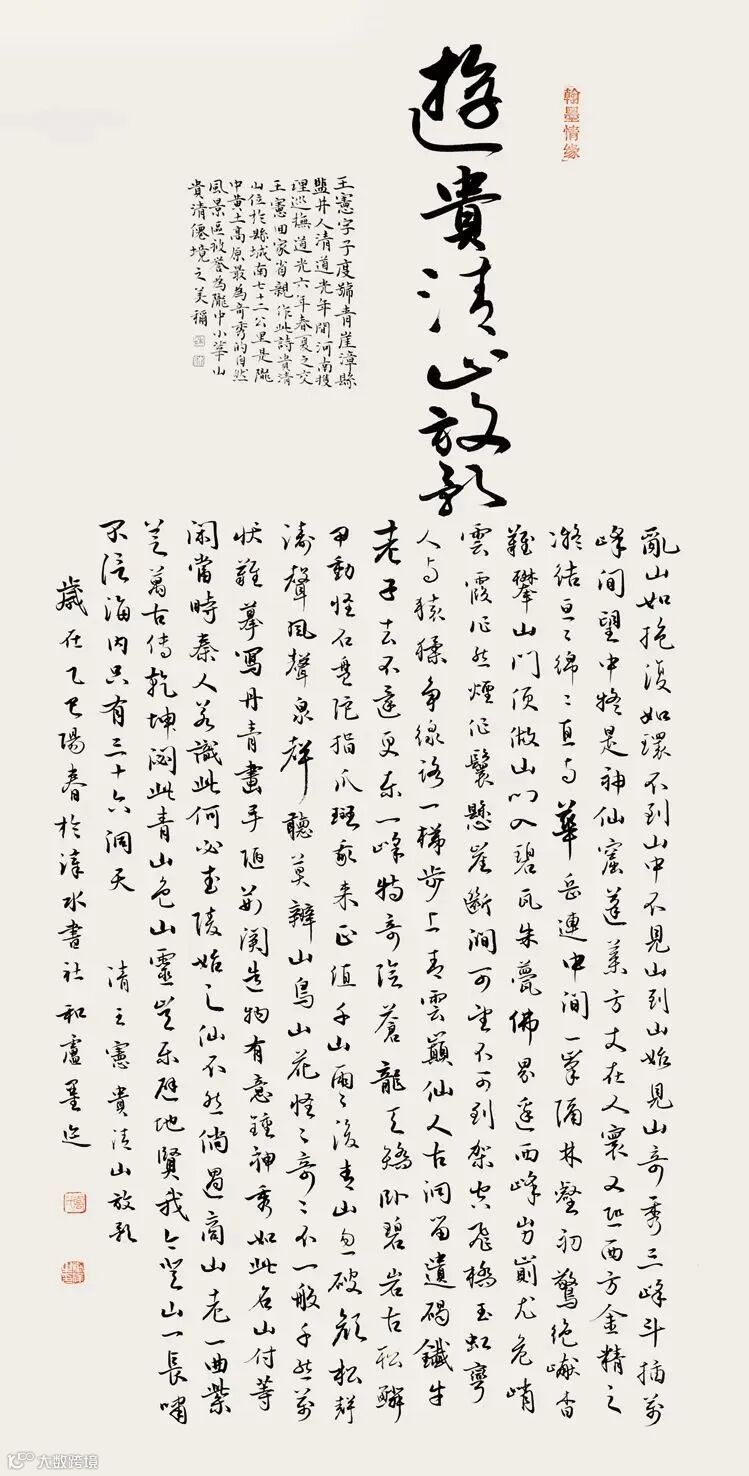 翰墨情缘
遊貴清山放歌
王憲字子度號青崖漳縣
鹽井人清道光年間河南按
理巡撫道光六年春夏之交
王憲回家省親作此詩貴清
山位於縣城南七十二公里是隴
中黄土高原最為奇秀的自然
風景區被譽為隴中小華山
貴清僊境之美稱
亂山如抱復如環不到山中不見山到山始見山奇秀三峰斗插萬
峰间望中疑是神仙窟蓬萊方丈在人寰又恐西方金精之
凝结亘亘綿綿直与華岳連中间一峯隔林壑初驚絶巘杳
難攀山門頂倣山门入碧瓦朱甍佛界遥西峰岃崱尤危峭
雲霞作態煙作鬟懸崖斷澗可望不可到架空飛橋玉虹彎
人与猿猱争線路一梯步上青雲巔仙人古洞留遺碣鐵牛
老子去不還更东一峰特奇险蒼龍夭矯卧碧岩古松鱗
甲動怪石盤陀指爪斑我来正值千山雨雨後青山忽破颜松聲
涛聲風聲泉聲聽莫辨山鳥山花怪怪奇奇不一般千態萬
状難摹寫丹青畫手随前関造物有意鍾神秀如此名山付等
閑當時秦人若識此何必武陵始之仙不然倘遇商山老一曲紫
芝萬古傳乾坤闷此青山色山靈豈乐避地賢我今登山一長嘯
不信海内只有三十六洞天 清王憲貴清山放歌
歲在乙巳陽春於漳水書社和盧墨迹
大数跨境